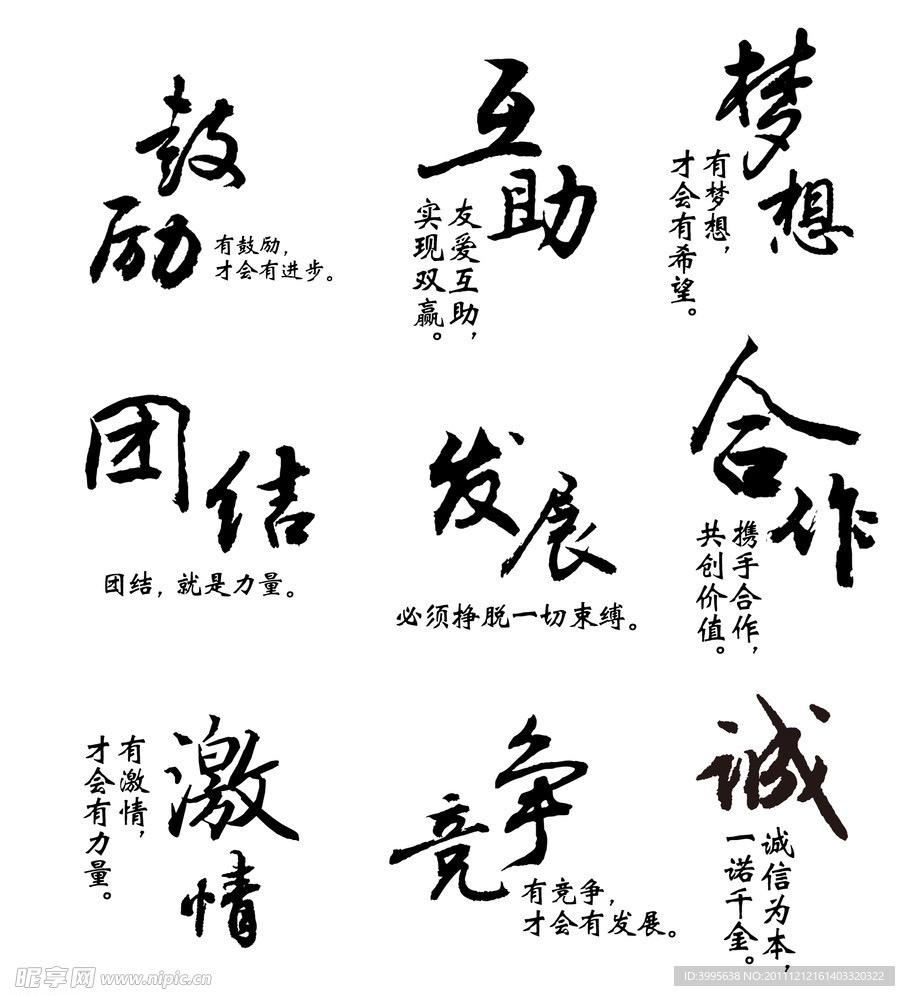 鼓励
有鼓励，
才会有进步。
互助
友爱互助，
实现双赢。
梦想
有梦想，
才会有希望。
团结
团结，就是力量。
发展
必须挣脱一切束缚。
合作
携手合作，
共创价值。
激情
有激情，
才会有力量。
竞争
有竞争，
才会有发展。
诚
诚信为本，
一诺千金。
昵享网 www.nipic.cn
ID:3995638 NO:20111212161403320322